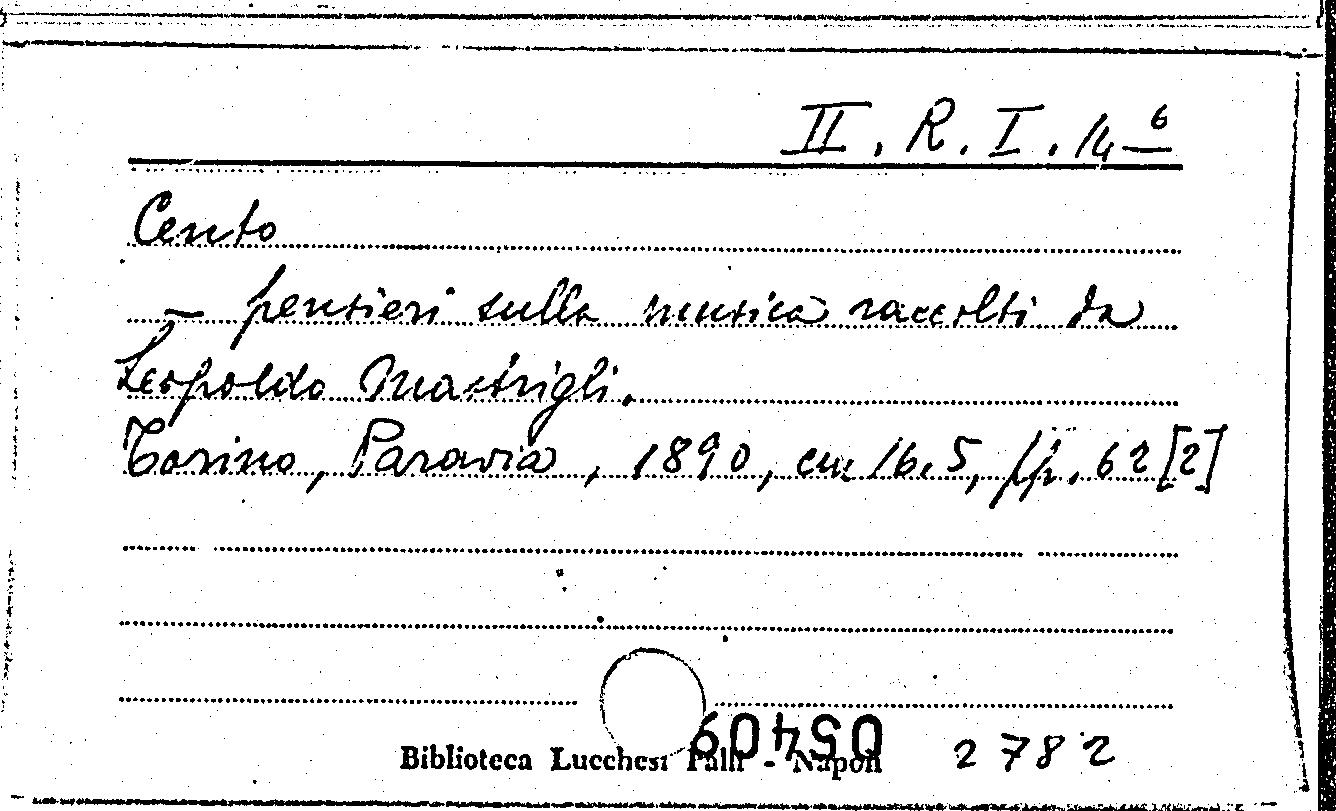 II. R. I. 14 6
Cento
– pensieri sulla musica raccolti da
Leopoldo Mastrigli.
Torino, Paravia, 1890, cm 16.5, pp. 62 [2]
054109
Biblioteca Lucchesi Palli - Napoli 2782